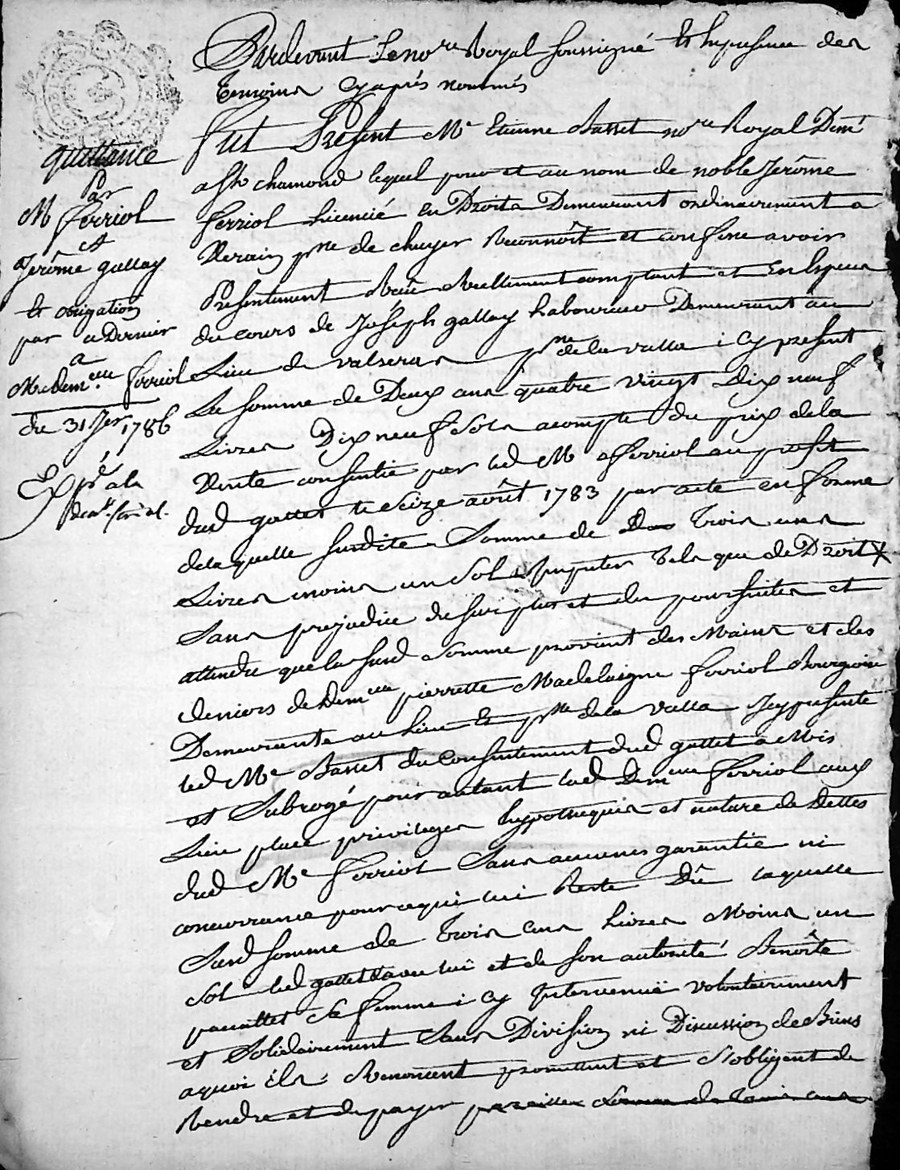 quittance
Par
M ferriol
et
Jerôme gallay
Et obligation
par a Dernier
a
Mademlle ferriol
du 31 Jer 1786
Expé a la
Pardevant Le nore Royal soussigné Et En presence des
temoins Cy après nommés
fut Present Me Etienne Basset nore Royal Demt
a St chamond lequel pour et au nom de noble Jerôme
ferriol Licencié En Droits Demeurant ordinairement a
Verain psse de chuyer Reconnoît et confesse avoir
Presentement Reçu Reellement comptant et En Especes
du cours de Joseph gallay Laboureur Demeurant au
Lieu de psse de la valla i cy present
La somme de Deux cens quatre vingt Dix neuf
Livres Dix neuf Sols acompte du prix de la
Vente consentie par led Me ferriol au profit
dud gallet le seize août 1783 par acte en forme
de laquelle susdite Somme de trois cens
Livres moins un Sol Imputer tels que de Droit
Sans prejudice du surplus et des poursuites et
attendu que la susd somme provient des Mains et des
deniers de Demlle pierrette Madelaigne ferriol Bourgoise
Demeurante au Lieu Et psse de la valla Icy presente
led Me Basset du consentement dud gallet a Mis
et Subrogé pour autant lad Demlle ferriol aux
Lieu place privileges hypotheques et nature de Dettes
dud Me ferriol Sans aucunes garantie ni
concurrance pour ce qui lui Reste Dû laquelle
Susd somme de trois cens Livres Moins un
Sol led gallet avec lui et de son autorité Benoîte
Sa femme i cy Intervenüe volontairement
et Solidairement Sans Division ni Discussion de Biens
a quoi ils Renoncent promettent et s'obligent de
Rendre et de payer pareille somme de trois cens